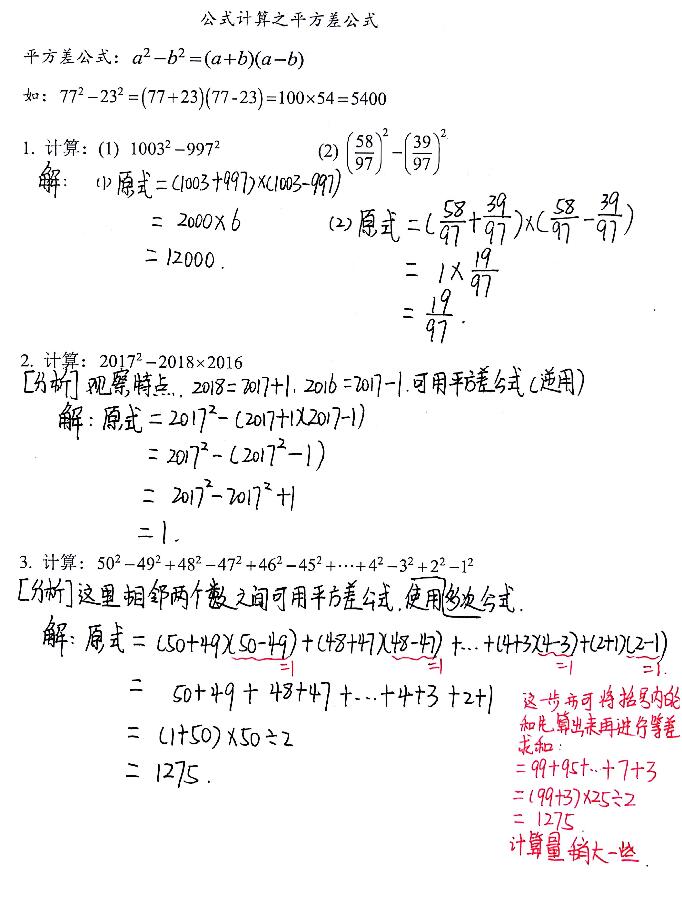 公式计算之平方差公式
平方差公式：a²−b²=(a+b)(a−b)
如：77²−23²=(77+23)(77-23)=100×54=5400
1. 计算：(1) 1003²−997² (2) (58/97)²−(39/97)²
解： (1) 原式=(1003+997)×(1003-997)
= 2000×6
= 12000.
(2) 原式=(58/97+39/97)×(58/97-39/97)
= 1×19/97
= 19/97.
2. 计算：2017²−2018×2016
[分析] 观察特点. 2018=2017+1. 2016=2017-1. 可用平方差公式(逆用)
解：原式=2017²-(2017+1)(2017-1)
= 2017²-(2017²-1)
= 2017²-2017²+1
= 1.
3. 计算：50²−49²+48²−47²+46²−45²+⋯+4²−3²+2²−1²
[分析] 这里相邻两个数之间可用平方差公式.使用多次公式.
解：原式=(50+49)(50-49)+(48+47)(48-47)+…+(4+3)(4-3)+(2+1)(2-1)
=1 =1 =1 =1.
= 50+49+48+47+…+4+3+2+1
= (1+50)×50÷2
= 1275.
这一步亦可将括号内的
和先算出来再进行等差
求和：
=99+95+…+7+3
=(99+3)×25÷2
= 1275.
计算量稍大一些.